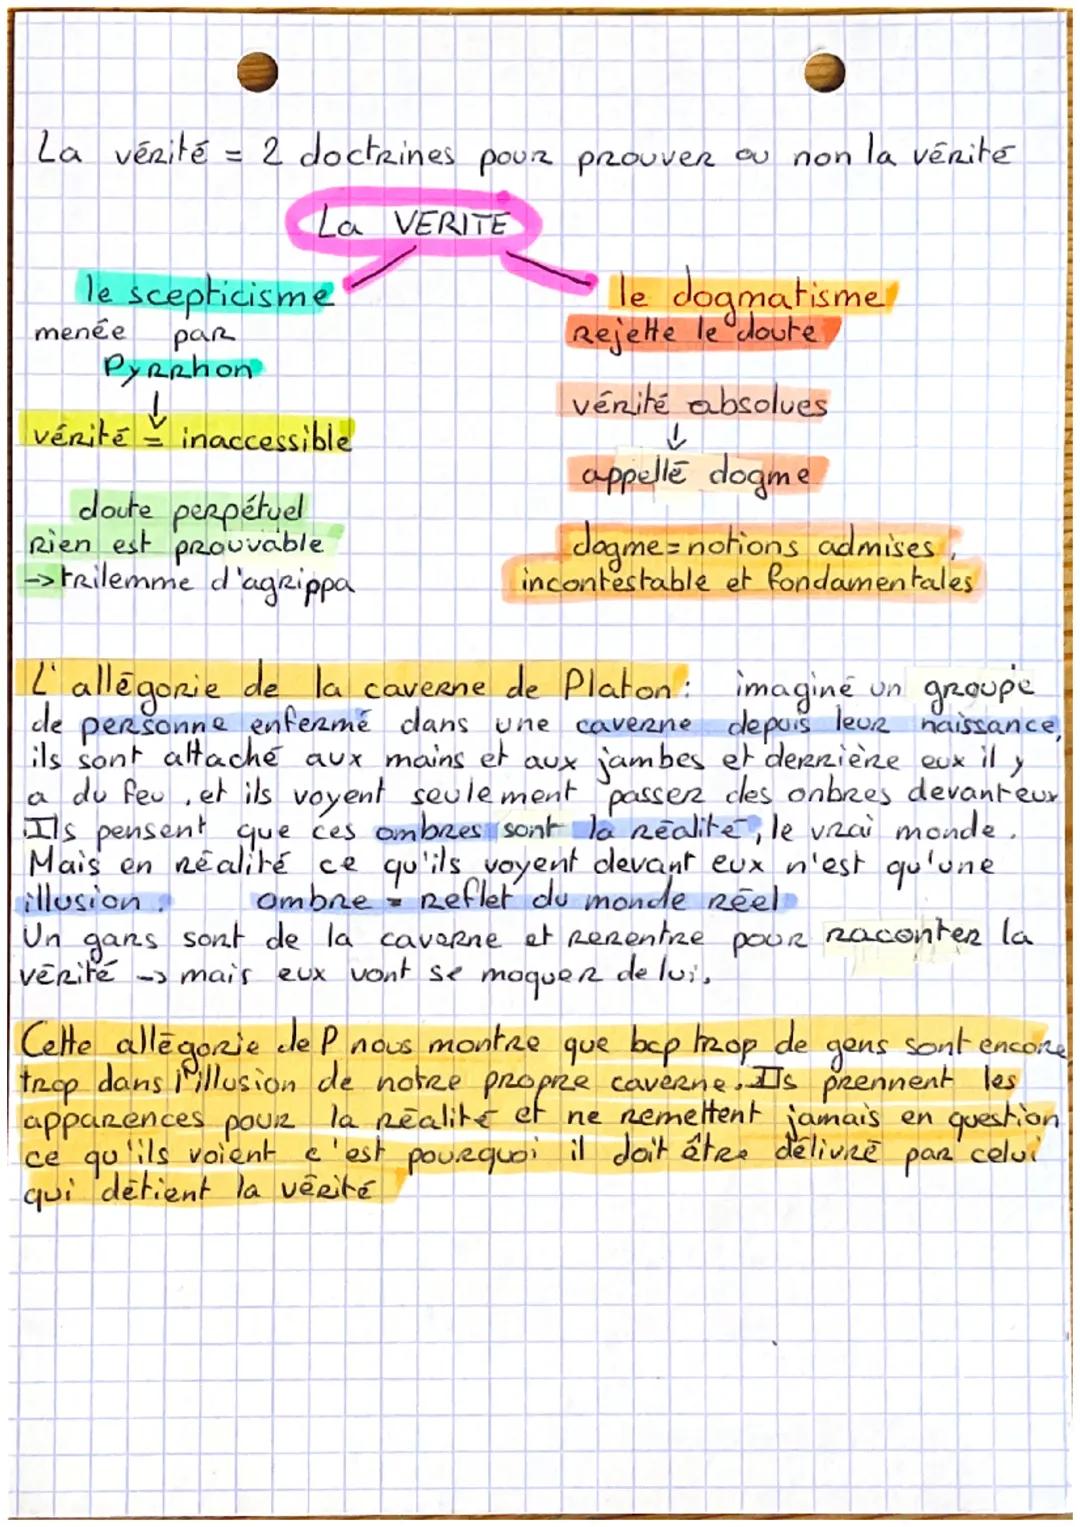 La vérité = 2 doctrines pour prouver ou non la vérité
La VERITE
le scepticisme
menée par
Pyrrhon
↓
vérité = inaccessible
doute perpétuel
Rien est prouvable
-> trilemme d'agrippa
le dogmatisme
Rejette le doute
vérité absolues
↓
appellé dogme
dogme = notions admises,
incontestable et fondamentales
L'allégorie de la caverne de Platon : imaginé un groupe
de personne enfermé dans une caverne depuis leur naissance,
ils sont attaché aux mains et aux jambes et derrière eux il y
a du feu, et ils voyent seulement passer des onbres devant eux
Ils pensent que ces ombres sont la réalité, le vrai monde.
Mais en réalité ce qu'ils voyent devant eux n'est qu'une
illusion. ombre = reflet du monde réel
Un gars sort de la caverne et rerentre pour raconter la
vérité -> mais eux vont se moquer de lui.
Cette allégorie de P nous montre que bcp trop de gens sont encore
trop dans l'illusion de notre propre caverne. Ils prennent les
apparences pour la réalité et ne remettent jamais en question
ce qu'ils voient c'est pourquoi il doit être délivré par celui
qui détient la vérité